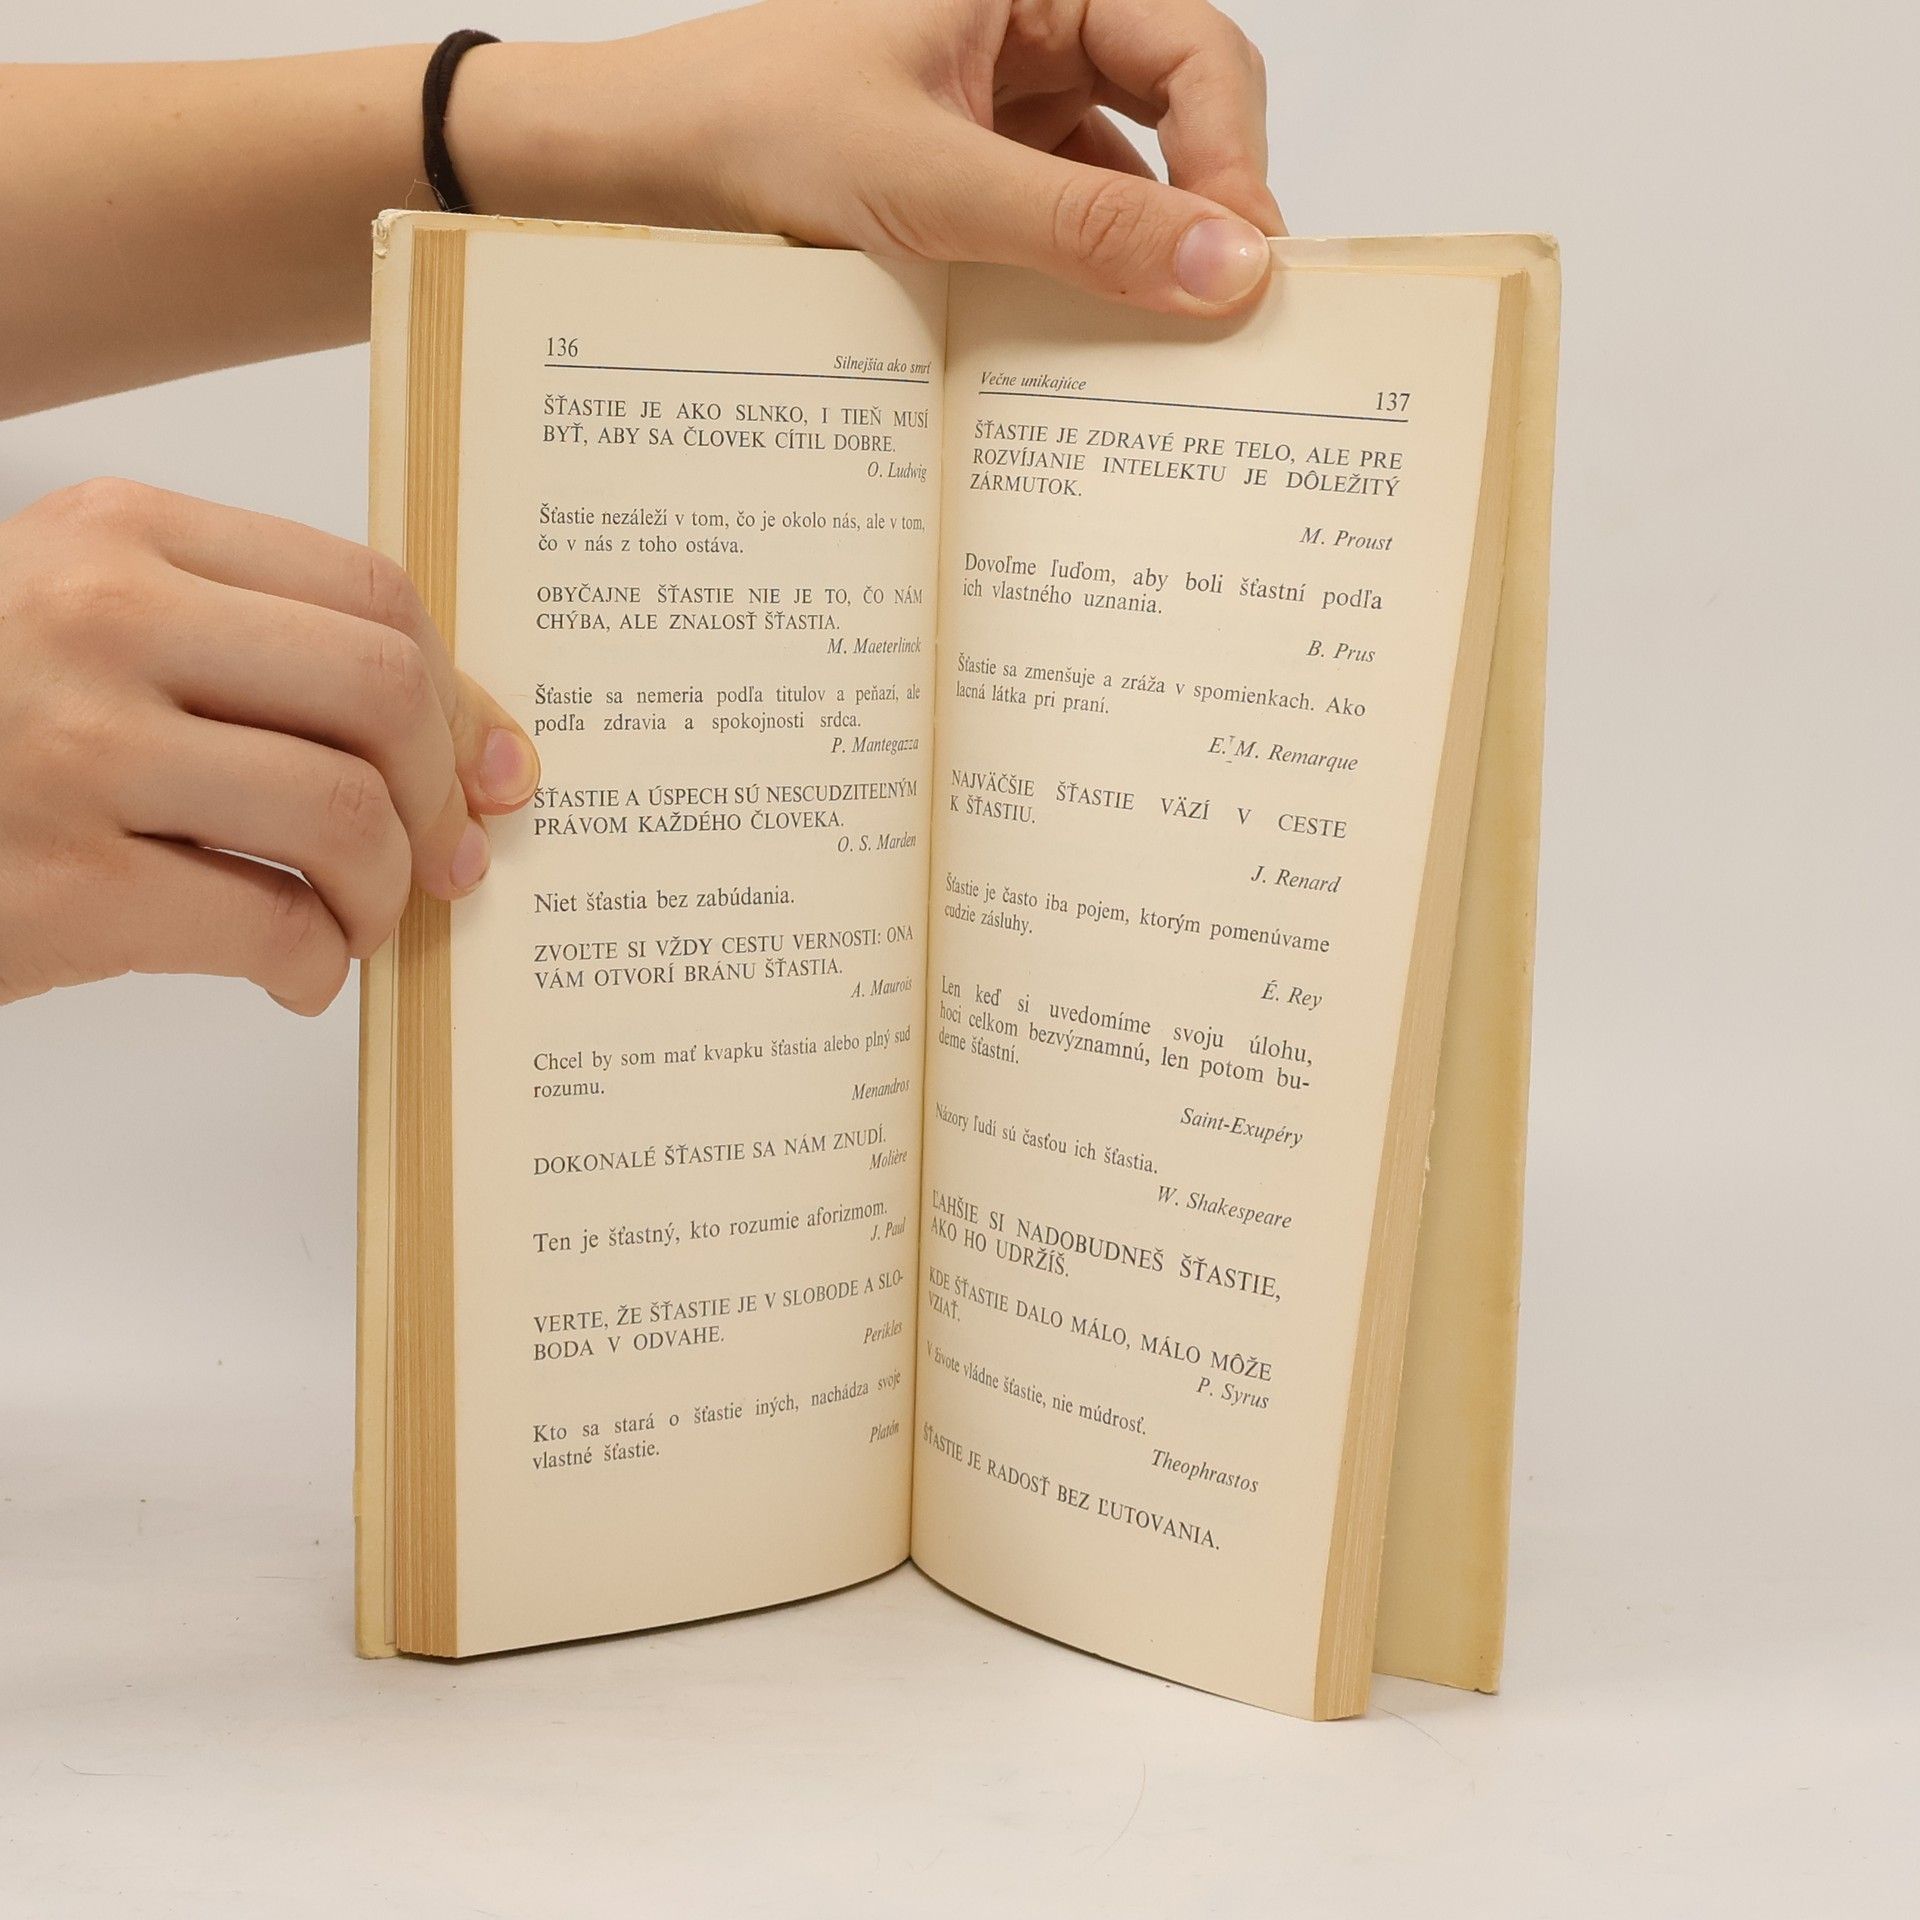 136
Silnejšia ako smrť
ŠŤASTIE JE AKO SLNKO, I TIEŇ MUSÍ
BYŤ, ABY SA ČLOVEK CÍTIL DOBRE.
O. Ludwig
Šťastie nezáleží v tom, čo je okolo nás, ale v tom,
čo v nás z toho ostáva.
OBYČAJNE ŠŤASTIE NIE JE TO, ČO NÁM
CHÝBA, ALE ZNALOSŤ ŠŤASTIA.
M. Maeterlinck
Šťastie sa nemeria podľa titulov a peňazí, ale
podľa zdravia a spokojnosti srdca.
P. Mantegazza
ŠŤASTIE A ÚSPECH SÚ NESCUDZITEĽNÝM
PRÁVOM KAŽDÉHO ČLOVEKA.
O. S. Marden
Niet šťastia bez zabúdania.
ZVOĽTE SI VŽDY CESTU VERNOSTI: ONA
VÁM OTVORÍ BRÁNU ŠŤASTIA.
A. Maurois
Chcel by som mať kvapku šťastia alebo plný sud
rozumu.
Menandros
DOKONALÉ ŠŤASTIE SA NÁM ZNUDÍ.
Molière
Ten je šťastný, kto rozumie aforizmom.
J. Paul
VERTE, ŽE ŠŤASTIE JE V SLOBODE A SLO-
BODA V ODVAHE.
Perikles
Kto sa stará o šťastie iných, nachádza svoje
vlastné šťastie.
Platón
Večne unikajúce
137
ŠŤASTIE JE ZDRAVÉ PRE TELO, ALE PRE
ROZVÍJANIE INTELEKTU JE DÔLEŽITÝ
ZÁRMUTOK.
M. Proust
Dovoľme ľuďom, aby boli šťastní podľa
ich vlastného uznania.
B. Prus
Šťastie sa zmenšuje a zráža v spomienkach. Ako
lacná látka pri praní.
E. M. Remarque
NAJVÄČŠIE ŠŤASTIE VÄZÍ V CESTE
K ŠŤASTIU.
J. Renard
Šťastie je často iba pojem, ktorým pomenúvame
cudzie zásluhy.
É. Rey
Len keď si uvedomíme svoju úlohu,
hoci celkom bezvýznamnú, len potom bu-
deme šťastní.
Saint-Exupéry
Názory ľudí sú časťou ich šťastia.
W. Shakespeare
ĽAHŠIE SI NADOBUDNEŠ ŠŤASTIE,
AKO HO UDRŽÍŠ.
KDE ŠŤASTIE DALO MÁLO, MÁLO MÔŽE
VZIAŤ.
P. Syrus
V živote vládne šťastie, nie múdrosť.
Theophrastos
ŠŤASTIE JE RADOSŤ BEZ ĽUTOVANIA.